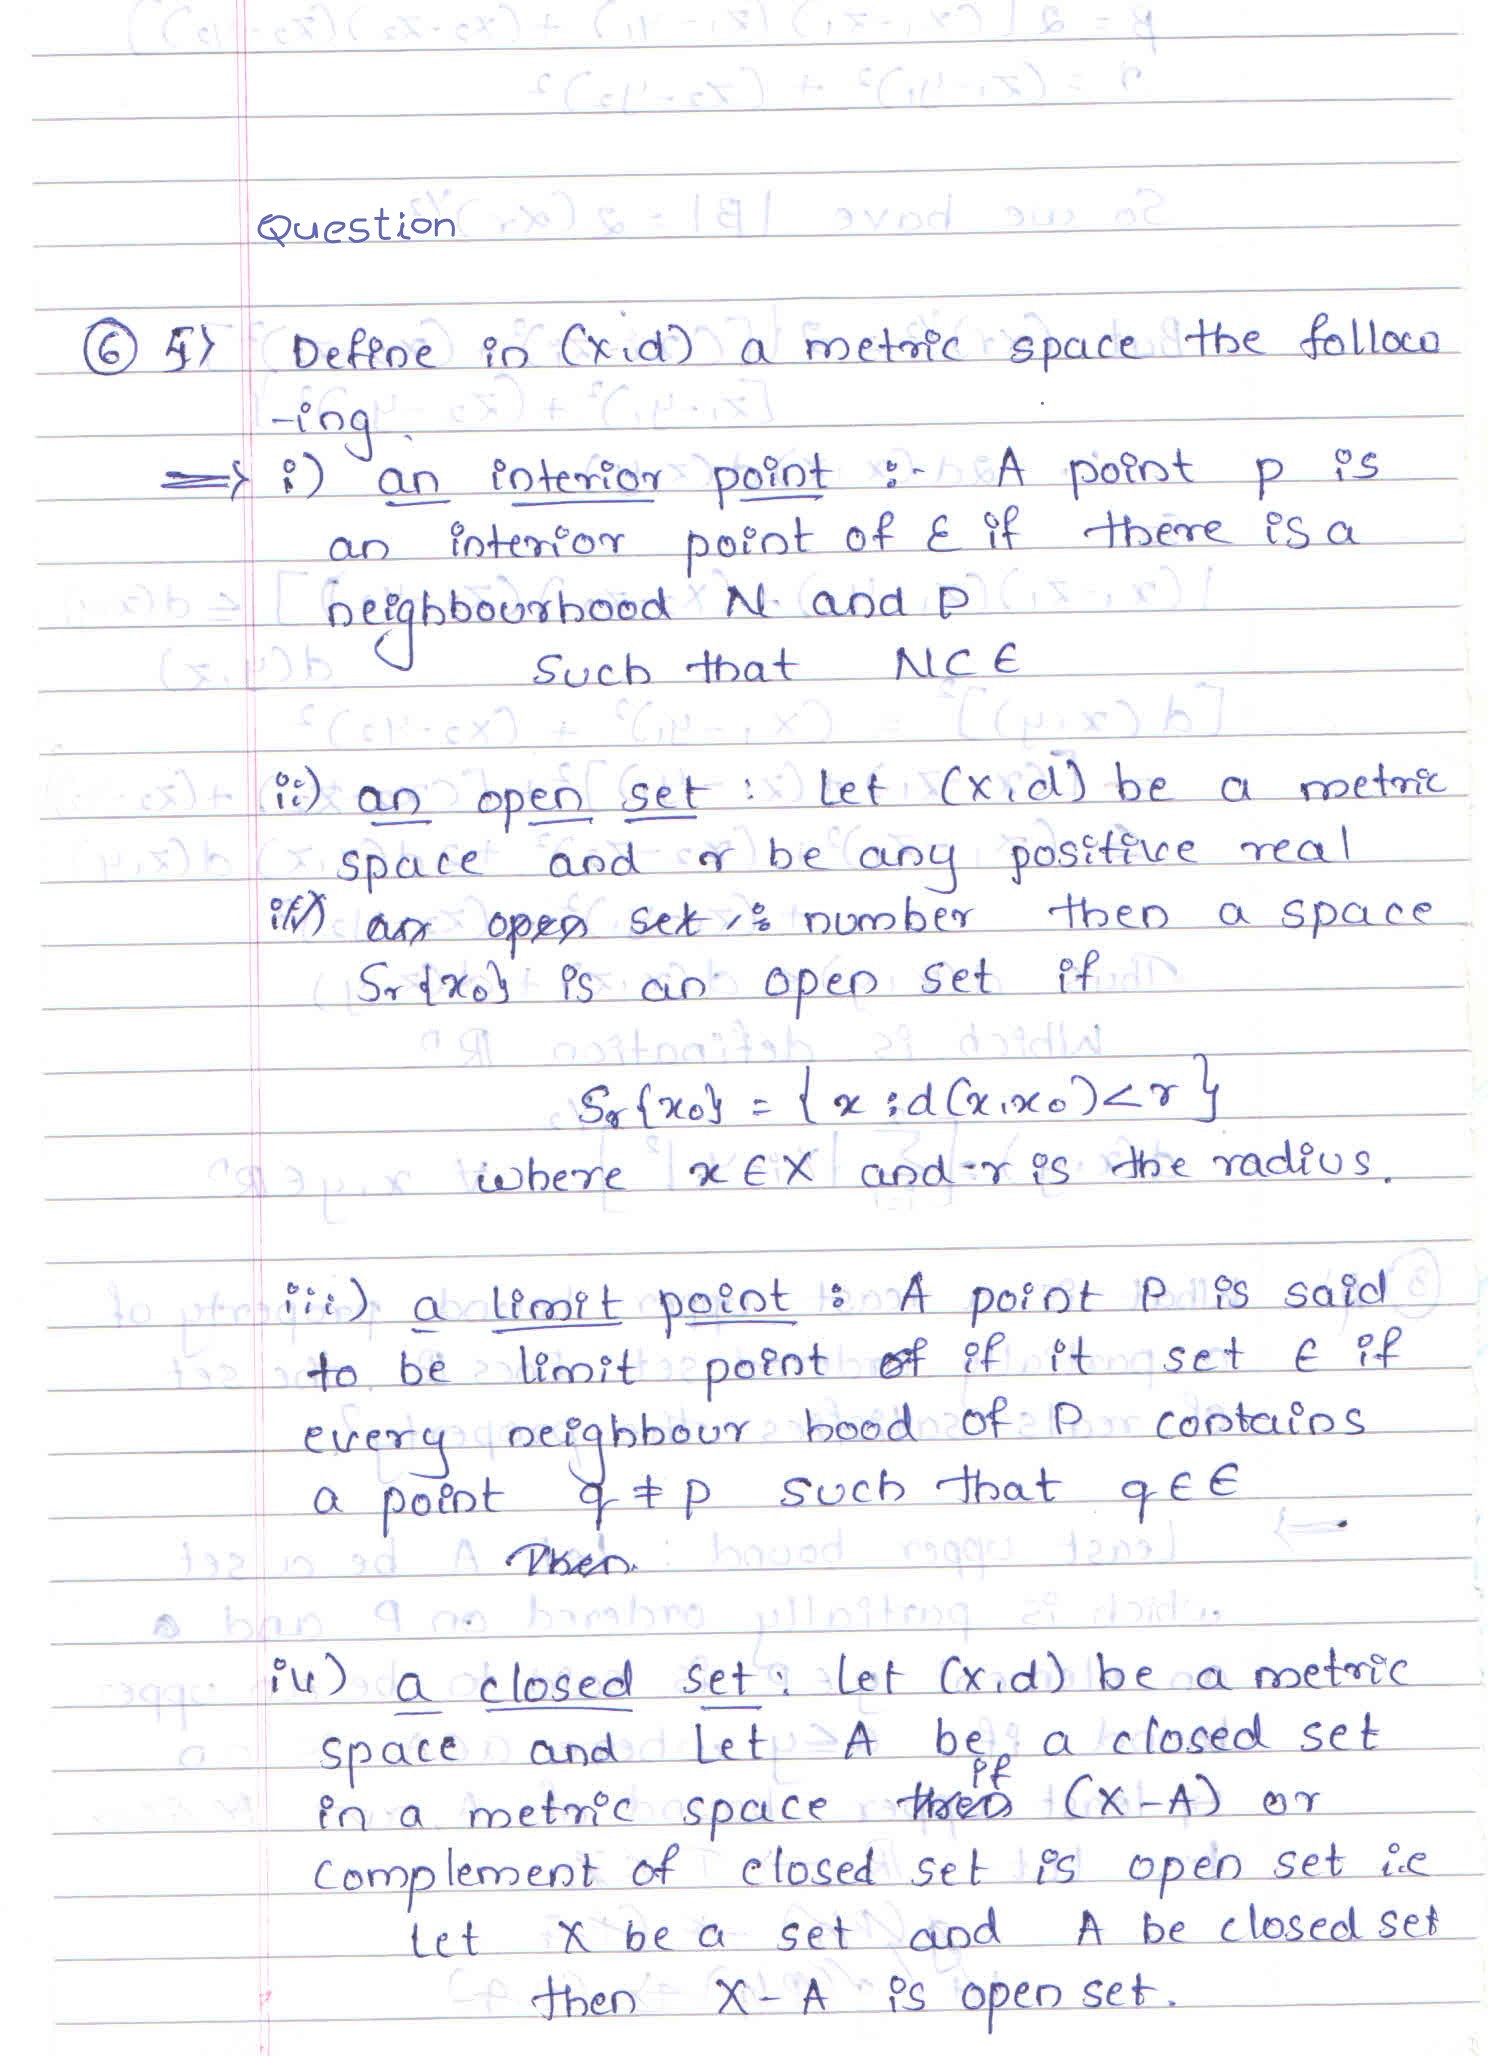 Question
⑥ 5> Define in (X,d) a metric space the follow
-ing.
⇒ i) an interior point :- A point p is
an interior point of E if there is a
neighbourhood N. and p
such that N⊂E
ii) an open set : Let (X,d) be a metric
space and r be any positive real
iii) an open set : number then a space
Sr{x0} is an open set if
Sr{x0} = {x : d(x,x0)<r}
where x∈X and r is the radius.
iii) a limit point : A point P is said
to be limit point of if it set E if
every neighbour hood of P contains
a point q≠p such that q∈E
Then.
iv) a closed set : Let (X,d) be a metric
space and Let A be a closed set
in a metric space then if (X-A) or
complement of closed set is open set i.e
Let X be a set and A be closed set
then X-A is open set.